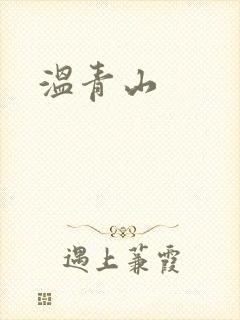 温青山
遇上蒹霞